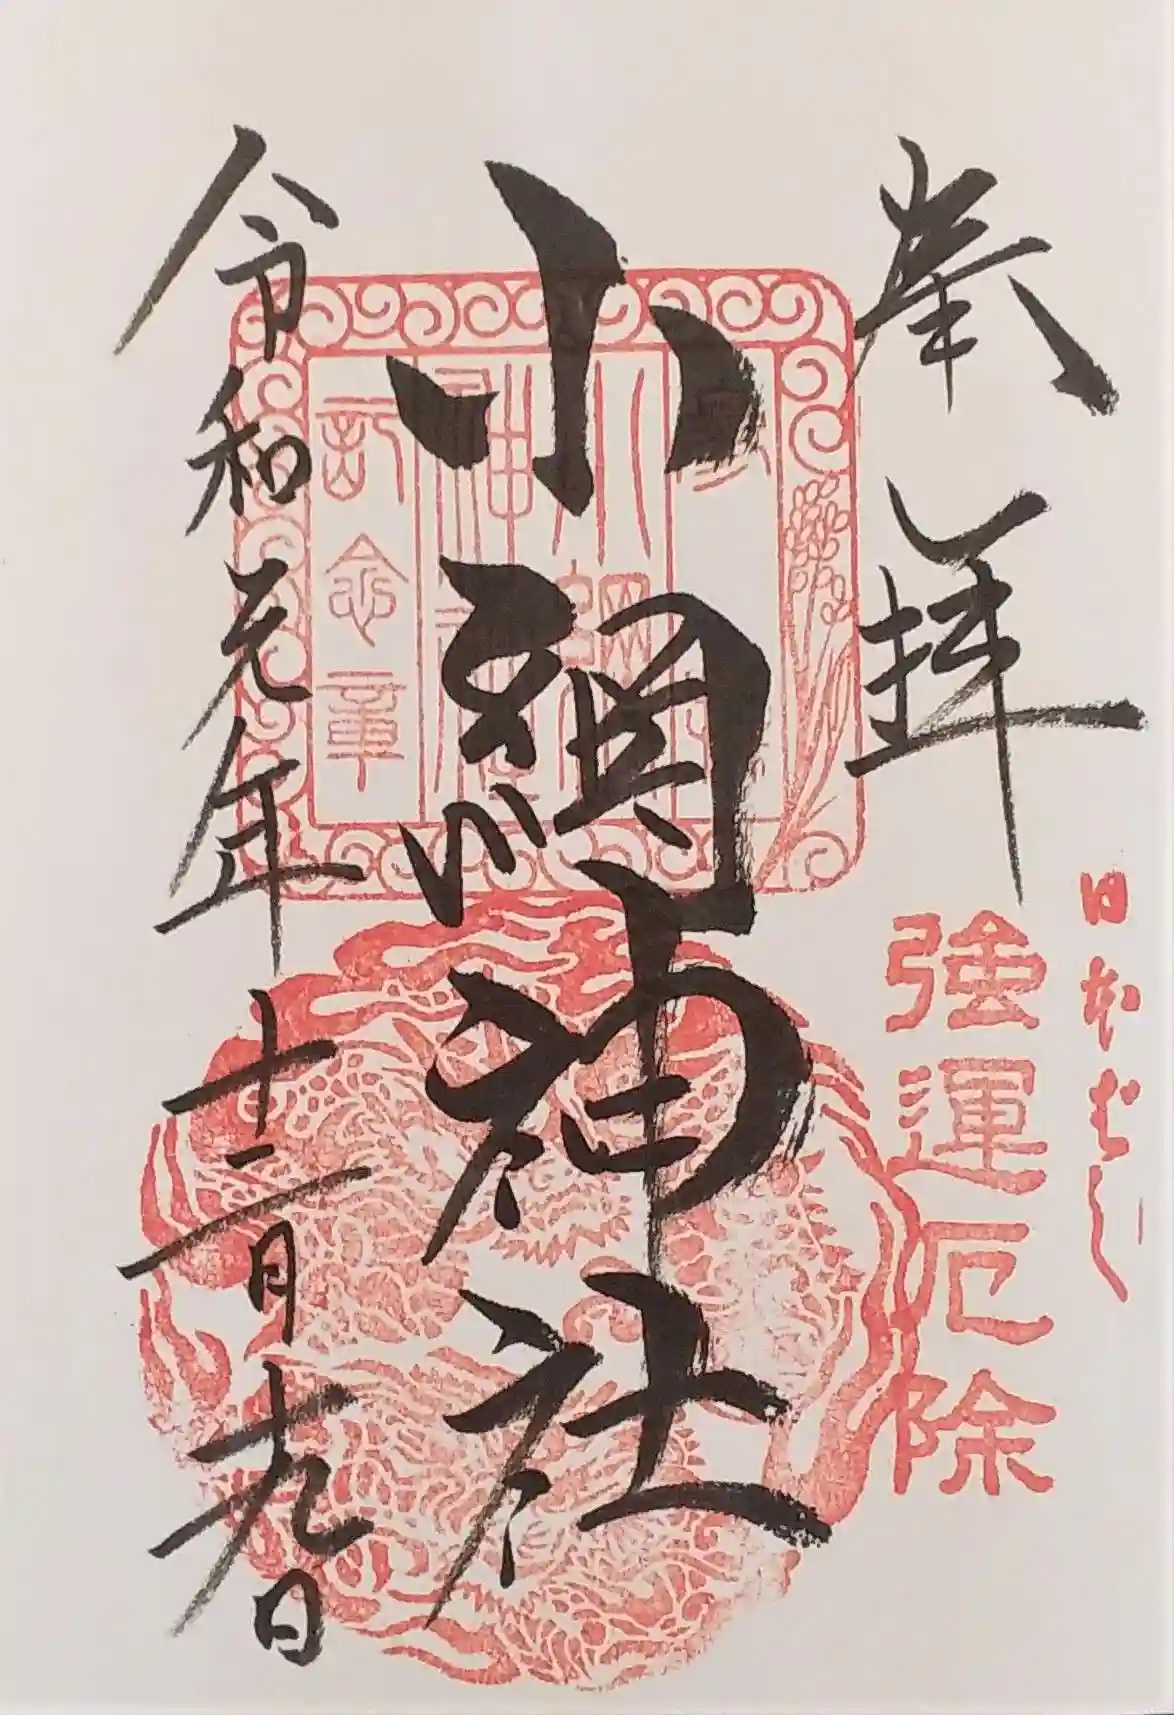 奉拝
日本ばし
強運厄除
小網神社
令和元年十二月十九日
小網
神社
記念章